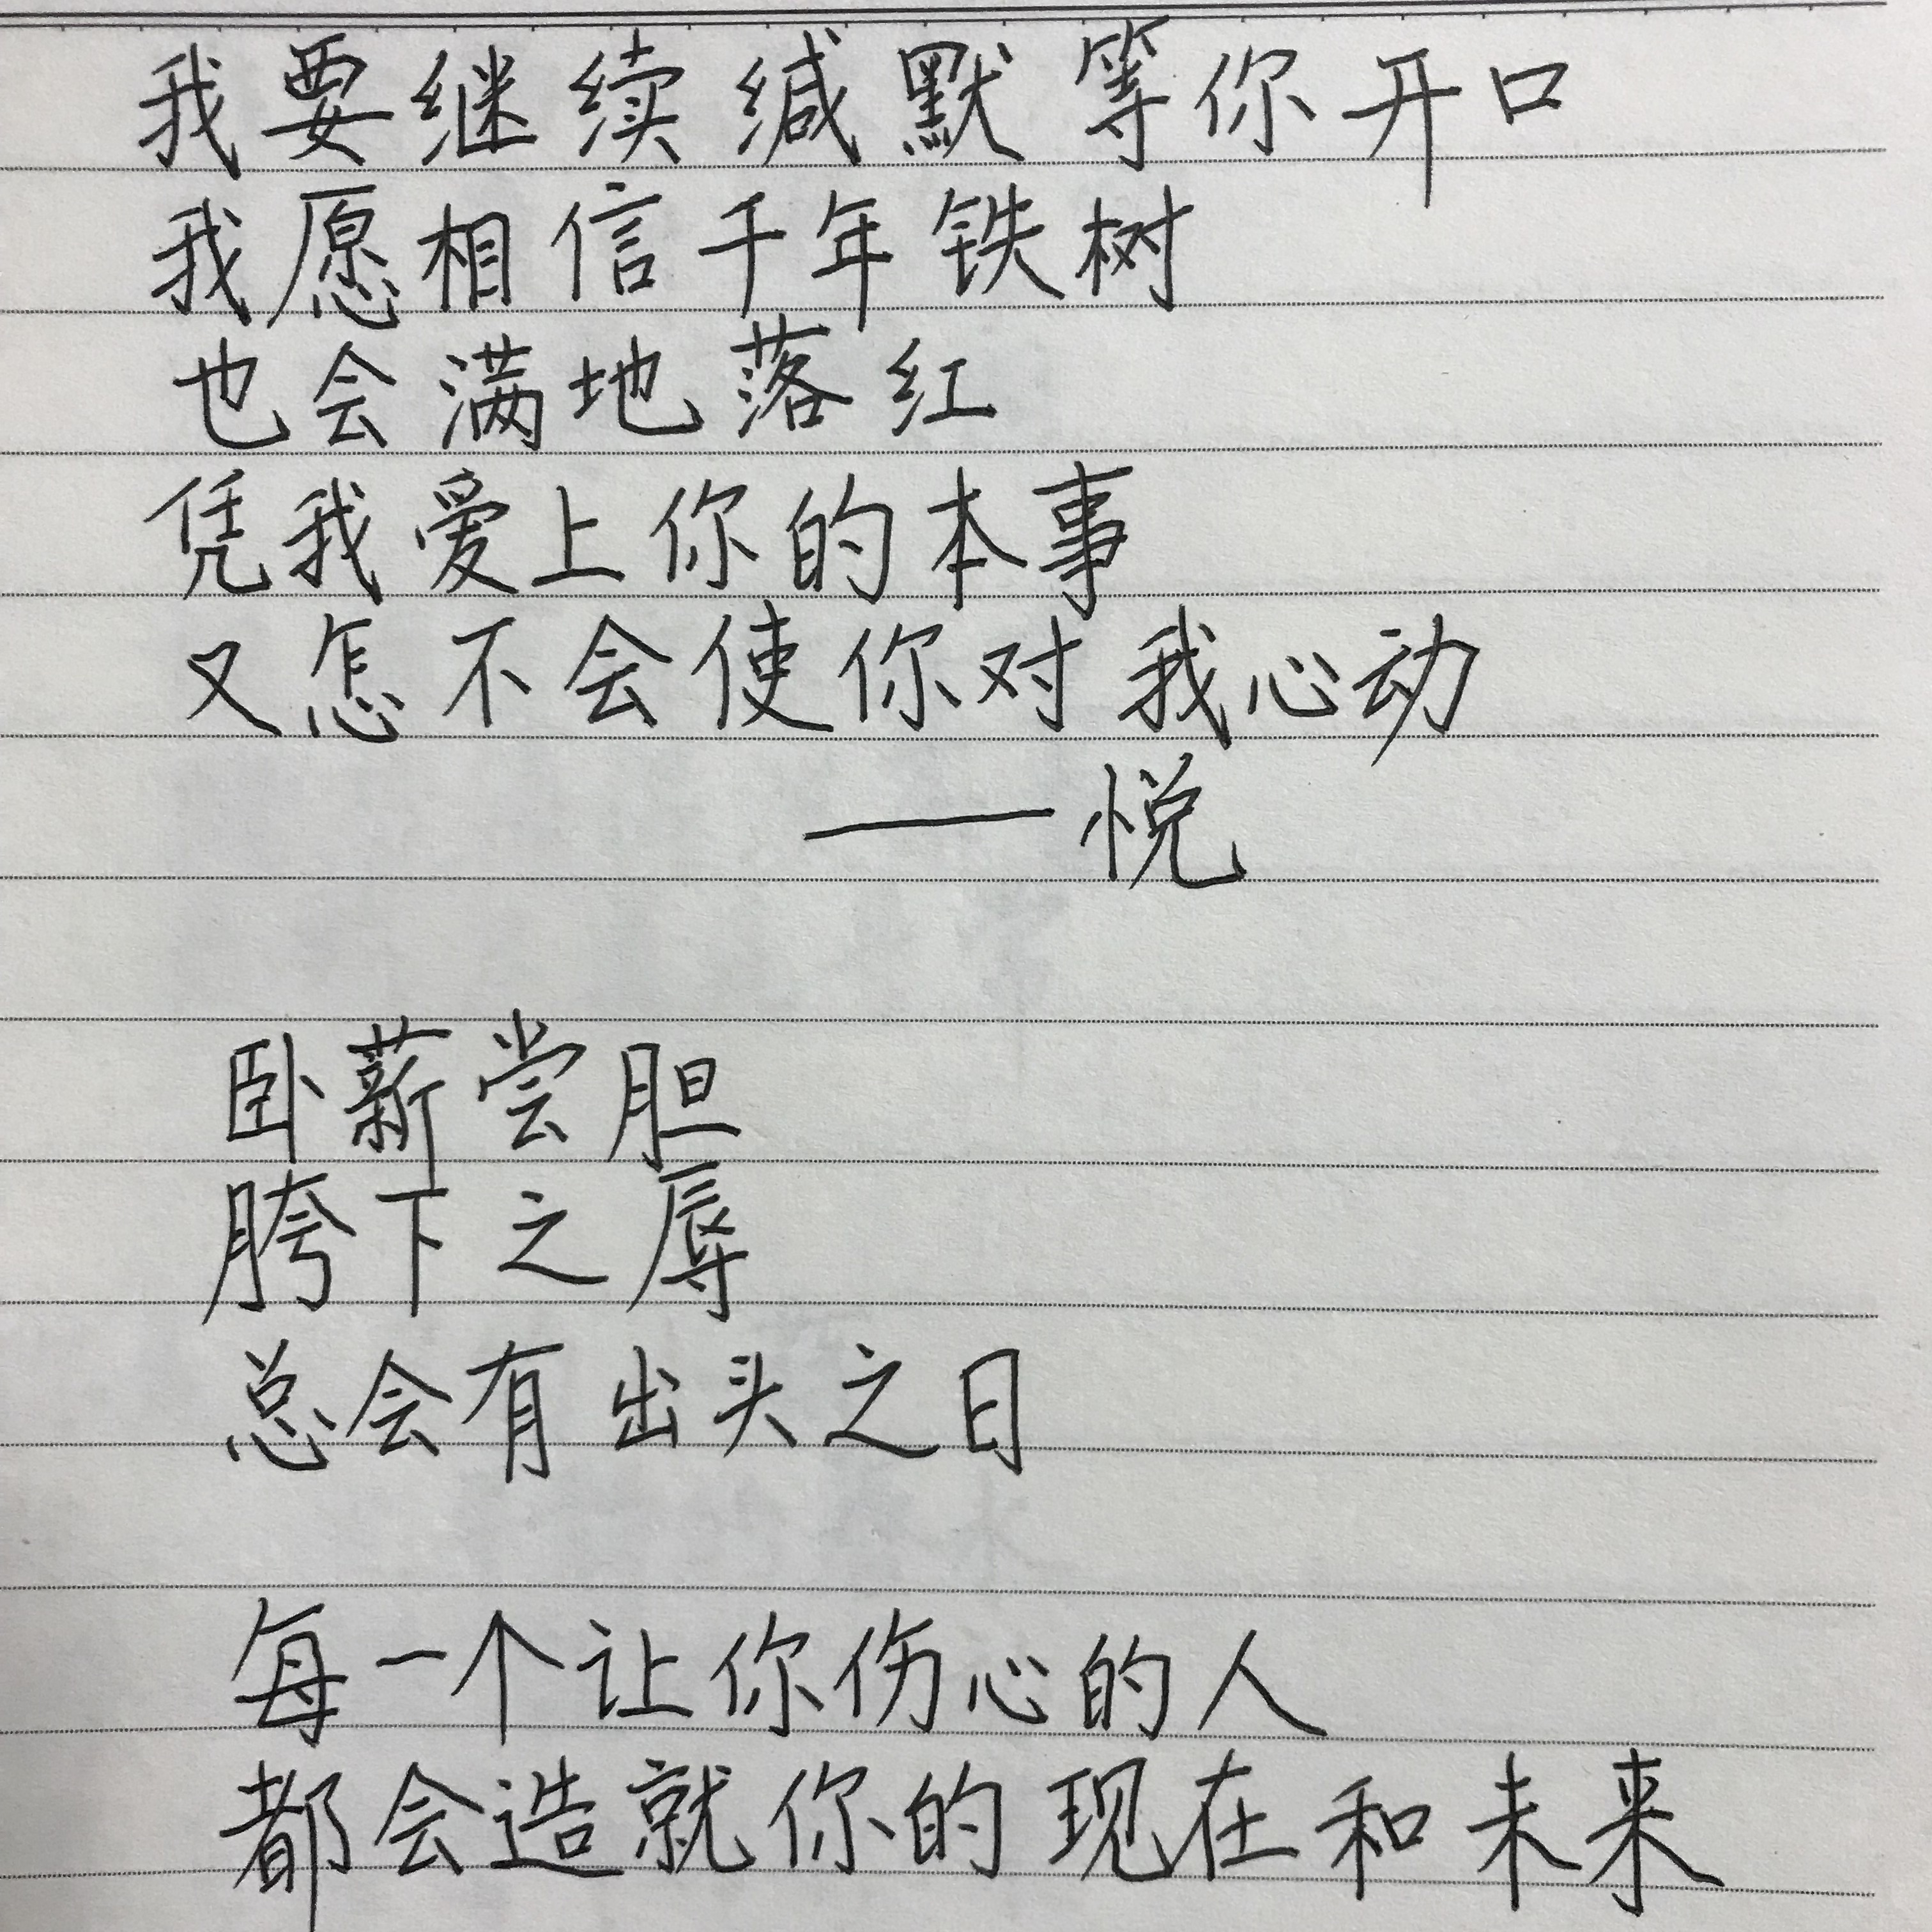 我要继续缄默等你开口
我愿相信千年铁树
也会满地落红
凭我爱上你的本事
又怎不会使你对我心动
——悦
卧薪尝胆
胯下之辱
总会有出头之日
每一个让你伤心的人
都会造就你的现在和未来